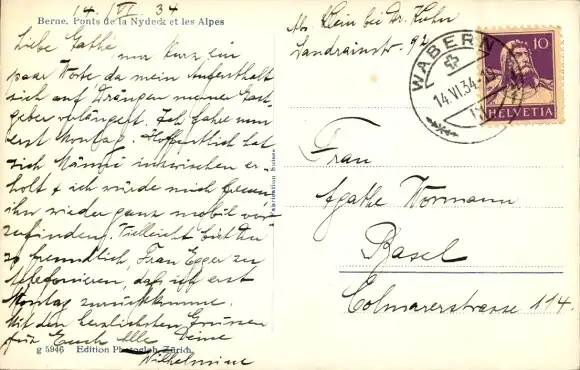 14. VI. 34
Berne, Ponts de la Nydeck et les Alpes
Liebe Gathe
nur kurz ein
paar Worte da mein Aufenthalt
sich auf Drängen meiner Gast-
geber verlängert. Ich fahre nun
erst Montag. Hoffentlich hat
sich Männi inzwischen er-
holt & ich würde mich freuen
ihn wieder ganz mobil vor-
zufinden. Vielleicht bist Du
so freundlich, Frau Egger zu
telefonieren, dass ich erst
Montag zurückkomme.
Mit den herzlichsten Grüssen
für Euch Alle Deine
Wilhelmine
g 5946 Edition Photoglob, Zürich
Fabrication Suisse
Abs. Klein bei Dr. Kuhn
WABERN
14.VI.34
10
HELVETIA
Frau
Agathe Wormann
Basel
Colmarerstrasse 114.